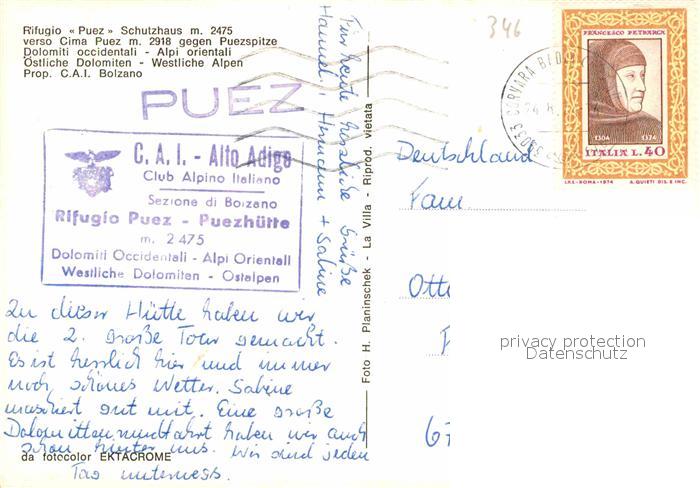 Rifugio «Puez» Schutzhaus m. 2475
verso Cima Puez m. 2918 gegen Puezspitze
Dolomiti occidentali - Alpi orientali
Östliche Dolomiten - Westliche Alpen
Prop. C.A.I. Bolzano
PUEZ
C.A.I. - Alto Adige
Club Alpino Italiano
Sezione di Bolzano
Rifugio Puez - Puezhütte
m. 2475
Dolomiti Occidentali - Alpi Orientali
Westliche Dolomiten - Ostalpen
Zu dieser Hütte haben wir
die 2. große Tour gemacht.
Es ist herrlich hier und immer
noch schönes Wetter. Sabine
marschiert gut mit. Eine große
Dolomittenrundfahrt haben wir auch
schon hinter uns. Wir sind jeden
Tag unterwegs.
da fotocolor EKTACROME
Für heute herzliche Grüße
Hannel., Hermann + Sabine
Foto H. Planinschek - La Villa - Riprod. vietata
346
FRANCESCO PETRARCA
1304 1374
ITALIA L. 40
I.P.S.-ROMA-1974 A. QUIETI DIS. E INC.
39033 CORVARA
Deutschland
Fam.
Otte
67
privacy protection
Datenschutz